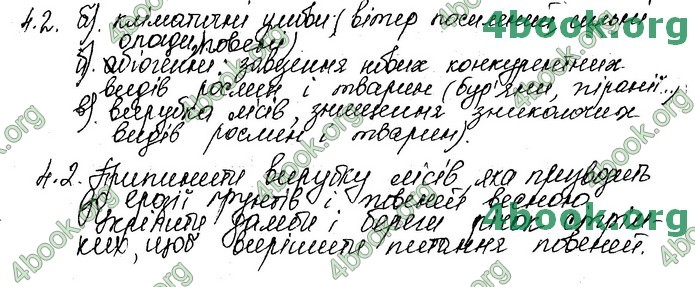 4.2. б). кліматичні умови (вітер посилений, сильні
опади, повені)
б) абіогенні: завезення нових конкурентних
видів рослин і тварин (бур'яни, піранії...)
в) вирубка лісів, знищення зникаючих
видів рослин і тварин).
4.2. Припинити вирубку лісів, яка призводить
до ерозії ґрунтів і повеней весною.
Укріпити дамби і береги річок
ких, щоб вирішити питання повеней.
www.4book.org
4book.org
4book.org
4book.org
4book.org